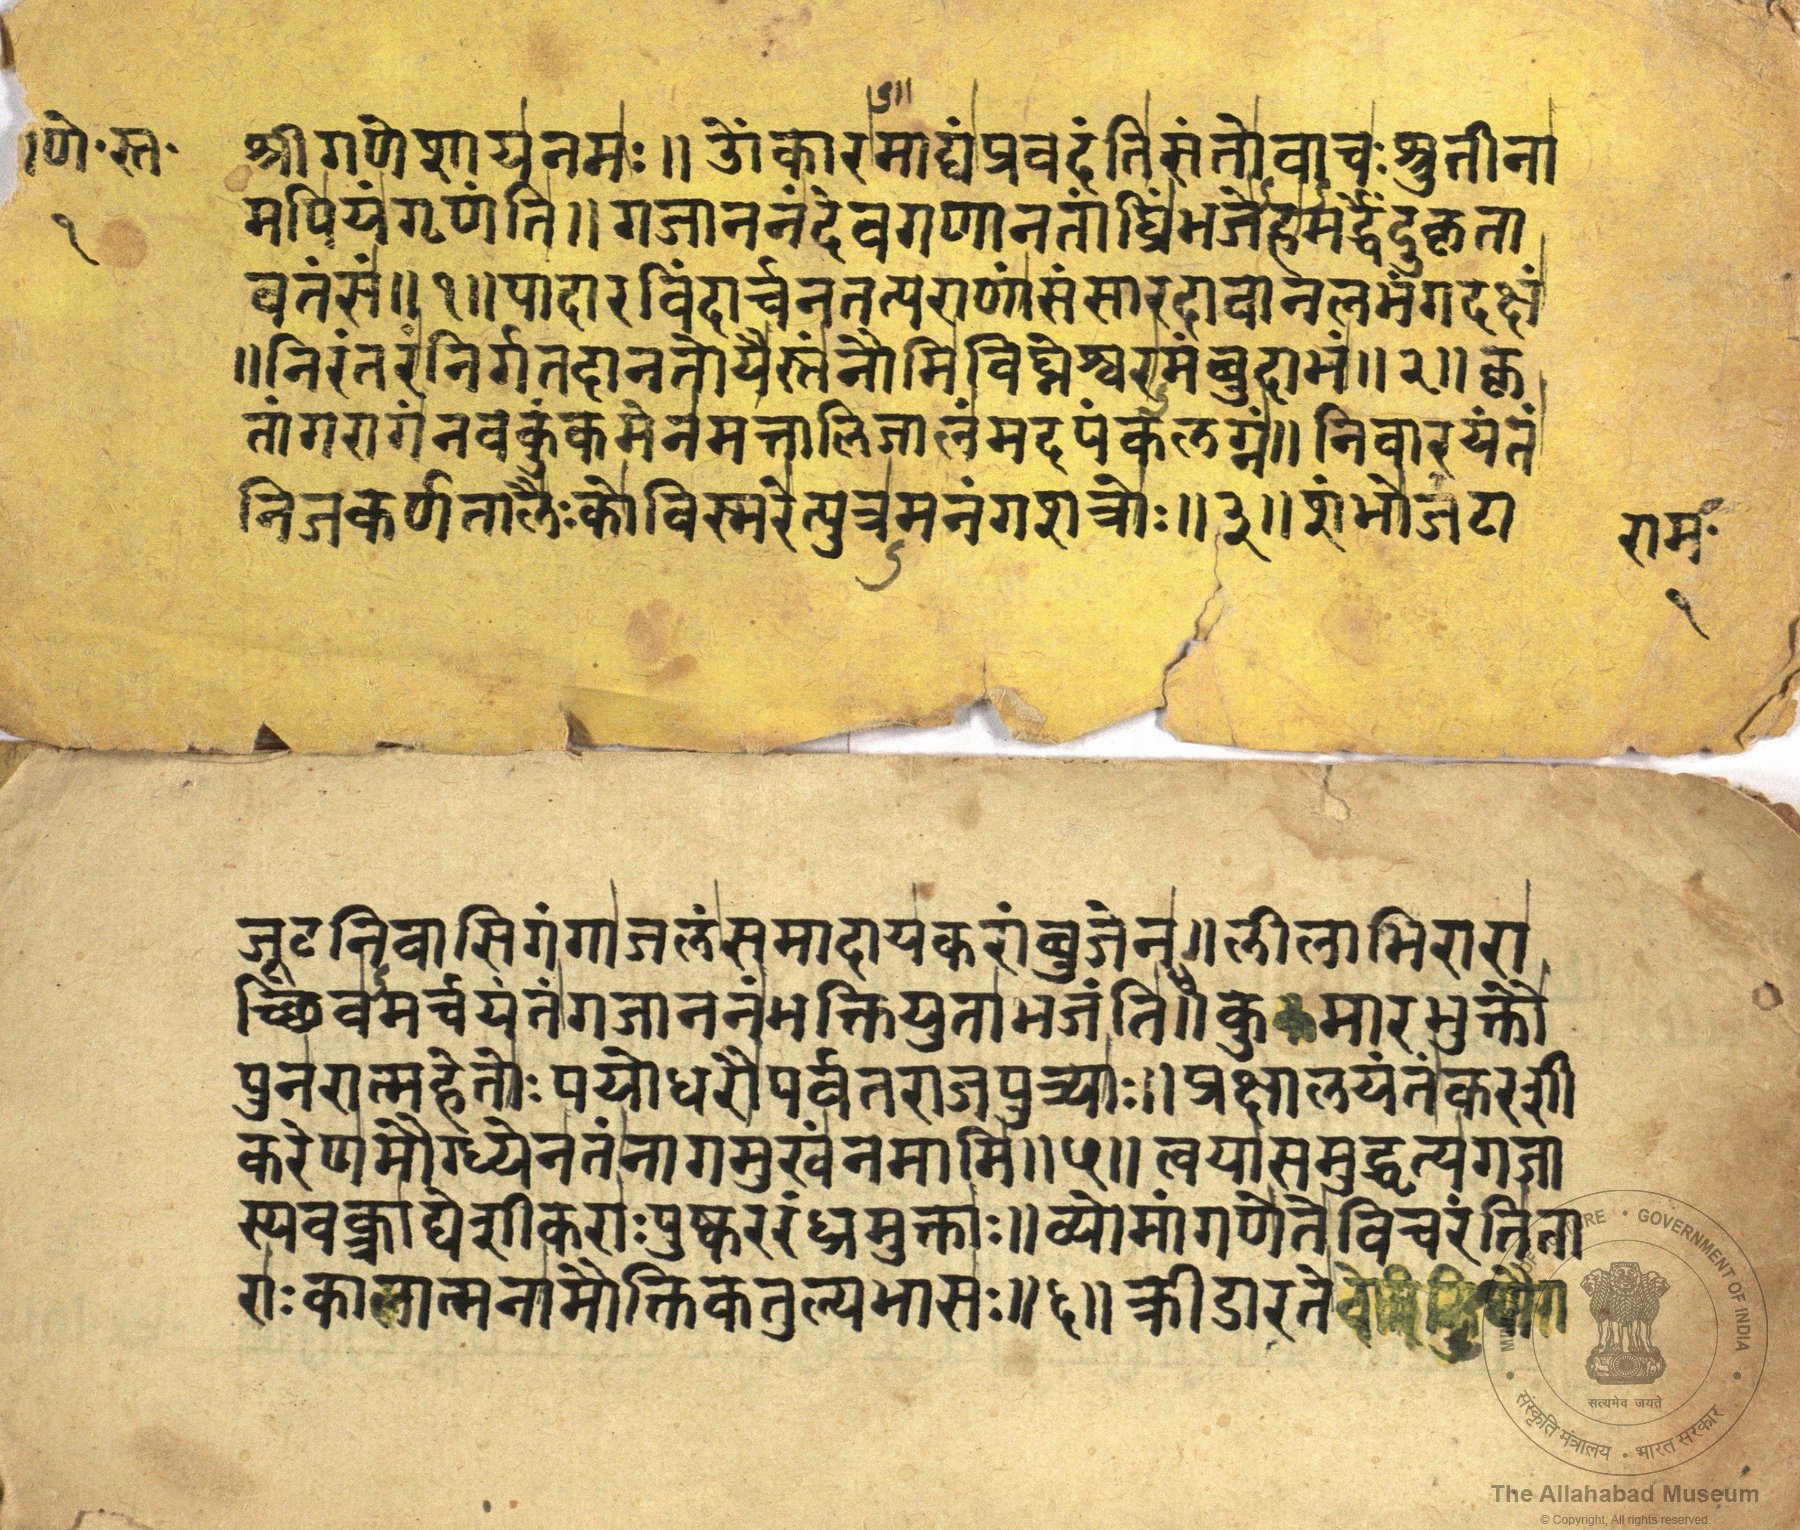 गणे॰स्त॰
१
श्रीगणेशायनमः॥ ओंकारमाद्यंप्रवदंतिसंतोवाचःश्रुतीना
मपियंगृणंति॥गजाननंदेवगणानतांघ्रिंभजेहमर्द्धेंदुकृता
वतंसं॥१॥पादारविंदार्च्चनतत्पराणांसंसारदावानलभंगदक्षं
॥निरंतरंनिर्गतदानतोयैस्तंनौमिविघ्नेश्वरमंबुदाभं॥२॥कृ
तांगरागंनवकुंकमेनमत्तालिजालंमदपंकलग्नं॥निवारयंतं
निजकर्णतालैःकोविस्मरेत्पुत्रमनंगशत्रोः॥३॥शंभोजटा
रामः
१
जूटनिवासिगंगाजलंसमादायकरांबुजेन॥लीलाभिरारा
च्छिवमर्च्चयंतंगजाननंभक्तियुताभजंति॥४॥कुमारभुक्तौ
पुनरात्महेतोःपयोधरौपर्वतराजपुत्र्याः॥प्रक्षालयंतंकरशी
करेणमौग्ध्येनतंनागमुखंनमामि॥५॥त्वयासमुद्धृत्यगजा
स्यवक्त्राद्येशीकराःपुष्कररंध्रमुक्ताः॥व्योमांगणेतेविचरंतिता
राःकालात्मनामौक्तिकतुल्यभासः॥६॥क्रीडारते
MINISTRY OF CULTURE • GOVERNMENT OF INDIA
सत्यमेव जयते
संस्कृति मंत्रालय • भारत सरकार
The Allahabad Museum
© Copyright, All rights reserved.